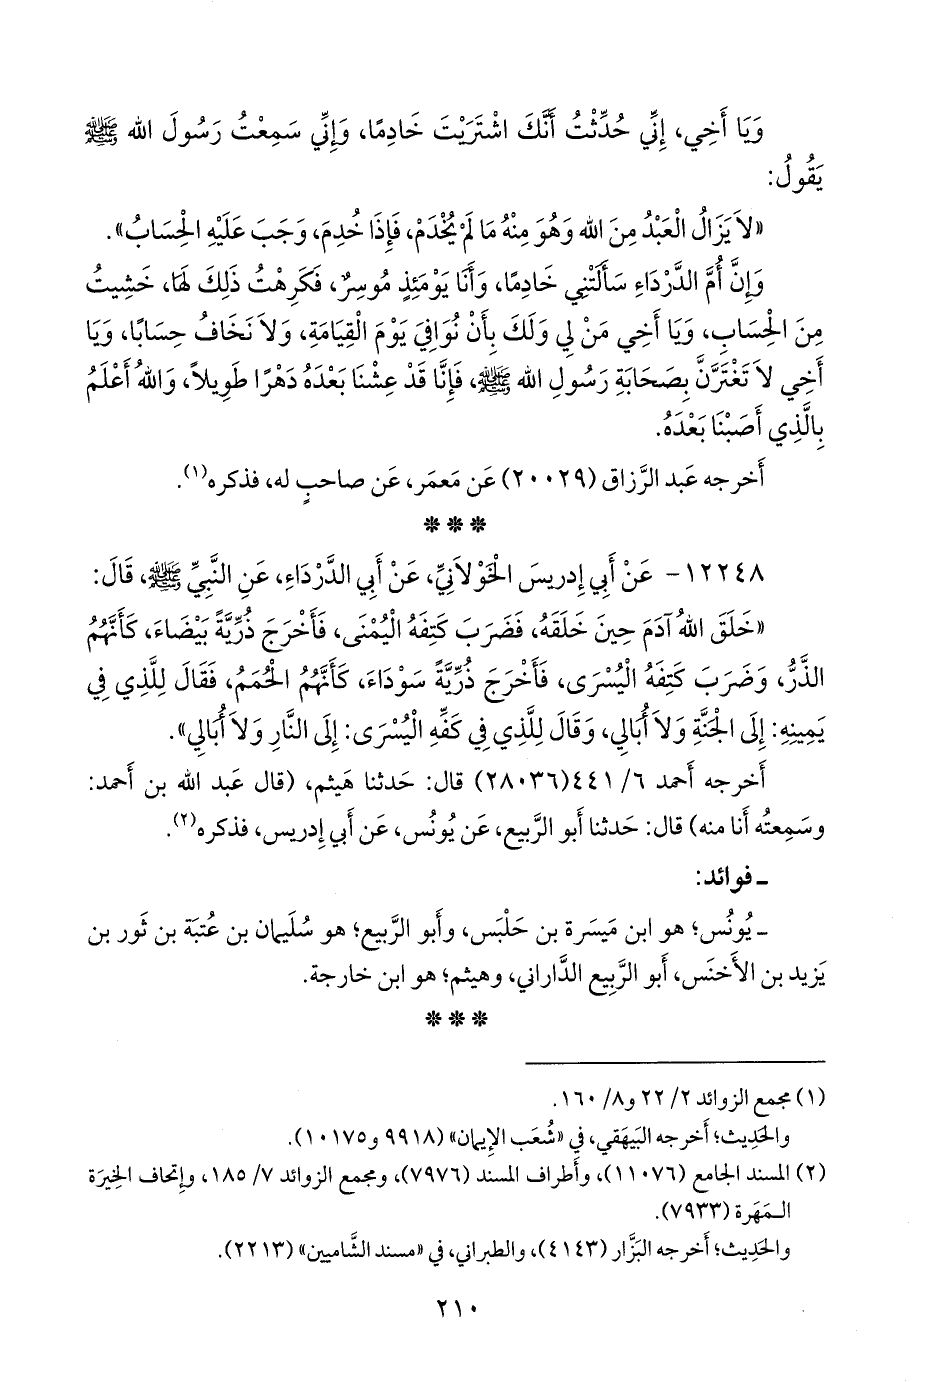 وَيَا أَخِي، إِنِّي حُدِّثْتُ أَنَّكَ اشْتَرَيْتَ خَادِمًا، وَإِنِّي سَمِعْتُ رَسُولَ الله ﷺ
يَقُولُ:
«لاَ يَزَالُ الْعَبْدُ مِنَ الله وَهُوَ مِنْهُ مَا لَمْ يُخْدَمْ، فَإِذَا خُدِمَ، وَجَبَ عَلَيْهِ الْحِسَابُ».
وَإِنَّ أُمَّ الدَّرْدَاءِ سَأَلَتْنِي خَادِمًا، وَأَنَا يَوْمَئِذٍ مُوسِرٌ، فَكَرِهْتُ ذَلِكَ لَهَا، خَشِيتُ
مِنَ الْحِسَابِ، وَيَا أَخِي مَنْ لِي وَلَكَ بِأَنْ نُوَافِيَ يَوْمَ الْقِيَامَةِ، وَلاَ نَخَافُ حِسَابًا، وَيَا
أَخِي لاَ تَغْتَرَّنَّ بِصَحَابَةِ رَسُولِ الله ﷺ، فَإِنَّا قَدْ عِشْنَا بَعْدَهُ دَهْرًا طَوِيلاً، وَاللهُ أَعْلَمُ
بِالَّذِي أَصَبْنَا بَعْدَهُ.
أَخرجه عَبد الرَّزاق (٢٠٠٢٩) عَن مَعمَر، عَن صاحبٍ له، فذكره(١).
***
١٢٢٤٨- عَنْ أَبِي إِدرِيسَ الْخَوْلاَنِيِّ، عَنْ أَبِي الدَّرْدَاءِ، عَنِ النَّبِيِّ ﷺ، قَالَ:
«خَلَقَ اللهُ آدَمَ حِينَ خَلَقَهُ، فَضَرَبَ كَتِفَهُ الْيُمْنَى، فَأَخْرَجَ ذُرِّيَّةً بَيْضَاءَ، كَأَنَّهُمُ
الذَّرُّ، وَضَرَبَ كَتِفَهُ الْيُسْرَى، فَأَخْرَجَ ذُرِّيَّةً سَوْدَاءَ، كَأَنَّهُمُ الْحُمَمُ، فَقَالَ لِلَّذِي فِي
يَمِينِهِ: إِلَى الْجَنَّةِ وَلاَ أُبَالِي، وَقَالَ لِلَّذِي فِي كَفِّهِ الْيُسْرَى: إِلَى النَّارِ وَلاَ أُبَالِي».
أَخرجه أَحمد ٦/ ٤٤١(٢٨٠٣٦) قال: حَدثنا هَيثم، (قال عَبد الله بن أَحمد:
وسَمِعتُه أَنا منه) قال: حَدثنا أَبو الرَّبيع، عَن يُونُس، عَن أَبي إِدريس، فذكره(٢).
ـ فوائد:
ـ يُونُس؛ هو ابن مَيسَرة بن حَلْبَس، وأَبو الرَّبيع؛ هو سُلَيمان بن عُتبَة بن ثَور بن
يَزيد بن الأَخنَس، أَبو الرَّبِيع الدَّاراني، وهيثم؛ هو ابن خارجة.
***
(١) مجمع الزوائد ٢/ ٢٢ و٨/ ١٦٠.
والحَدِيث؛ أخرجه البَيهَقي، في «شُعَب الإِيمان» (٩٩١٨ و١٠١٧٥).
(٢) المسند الجامع (١١٠٧٦)، وأطراف المسند (٧٩٧٦)، ومجمع الزوائد ٧/ ١٨٥، وإتحاف الخِيرَة
المَهَرة (٧٩٣٣).
والحَدِيث؛ أخرجه البَزَّار (٤١٤٣)، والطبراني، في «مسند الشَّاميين» (٢٢١٣).
٢١٠